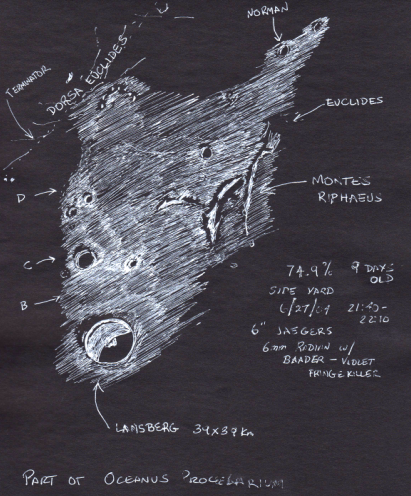 NORMAN
TERMINATOR
DORSA EUCLIDES
EUCLIDES
D
MONTES
RIPHAEUS
C
B
74.9% 9 DAYS
OLD
SIDE YARD
6/27/04 21:40-
22:10
6" JAEGERS
6mm RADIAN W/
BAADER - VIOLET
FRINGE KILLER
LANSBERG 39X39 Km
PART OF OCEANUS PROCELARIUM